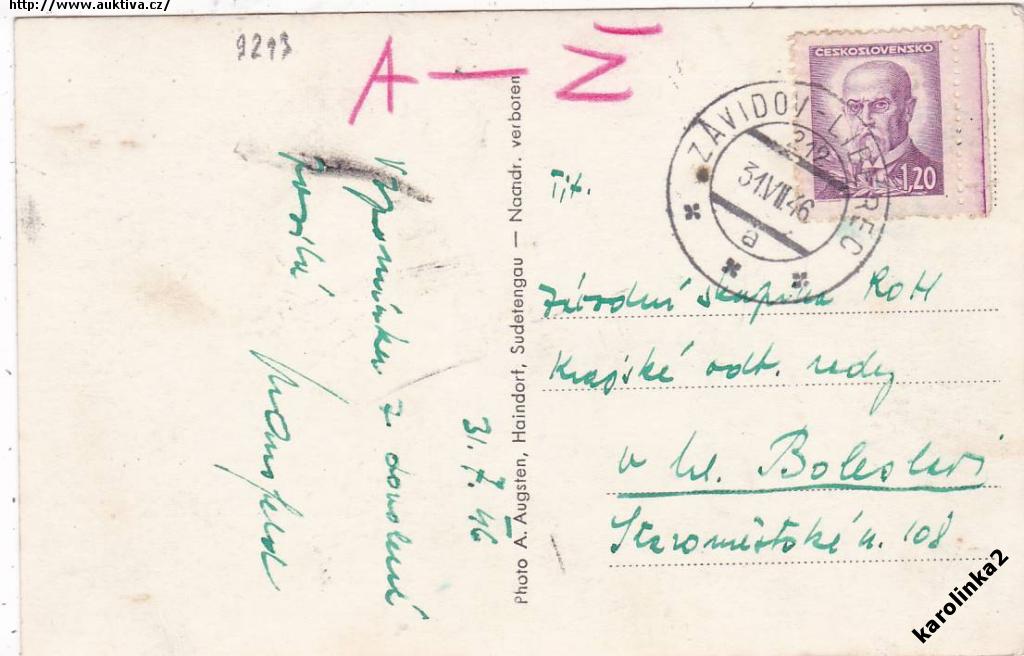 http://www.auktiva.cz/
9213
A – Z
ČESKOSLOVENSKO
1,20
ZÁVIDOV - LIBEREC
212
31.VII.46
a
31. 7. 46
Vzpomínku z dovolené
Mansfeld
Photo A. Augsten, Haindorf, Sudetengau — Nachdr. verboten
Tit.
Závodní skupina ROH
Krajské odb. rady
v Ml. Boleslavi
Staroměstská u. 108
karolinka2